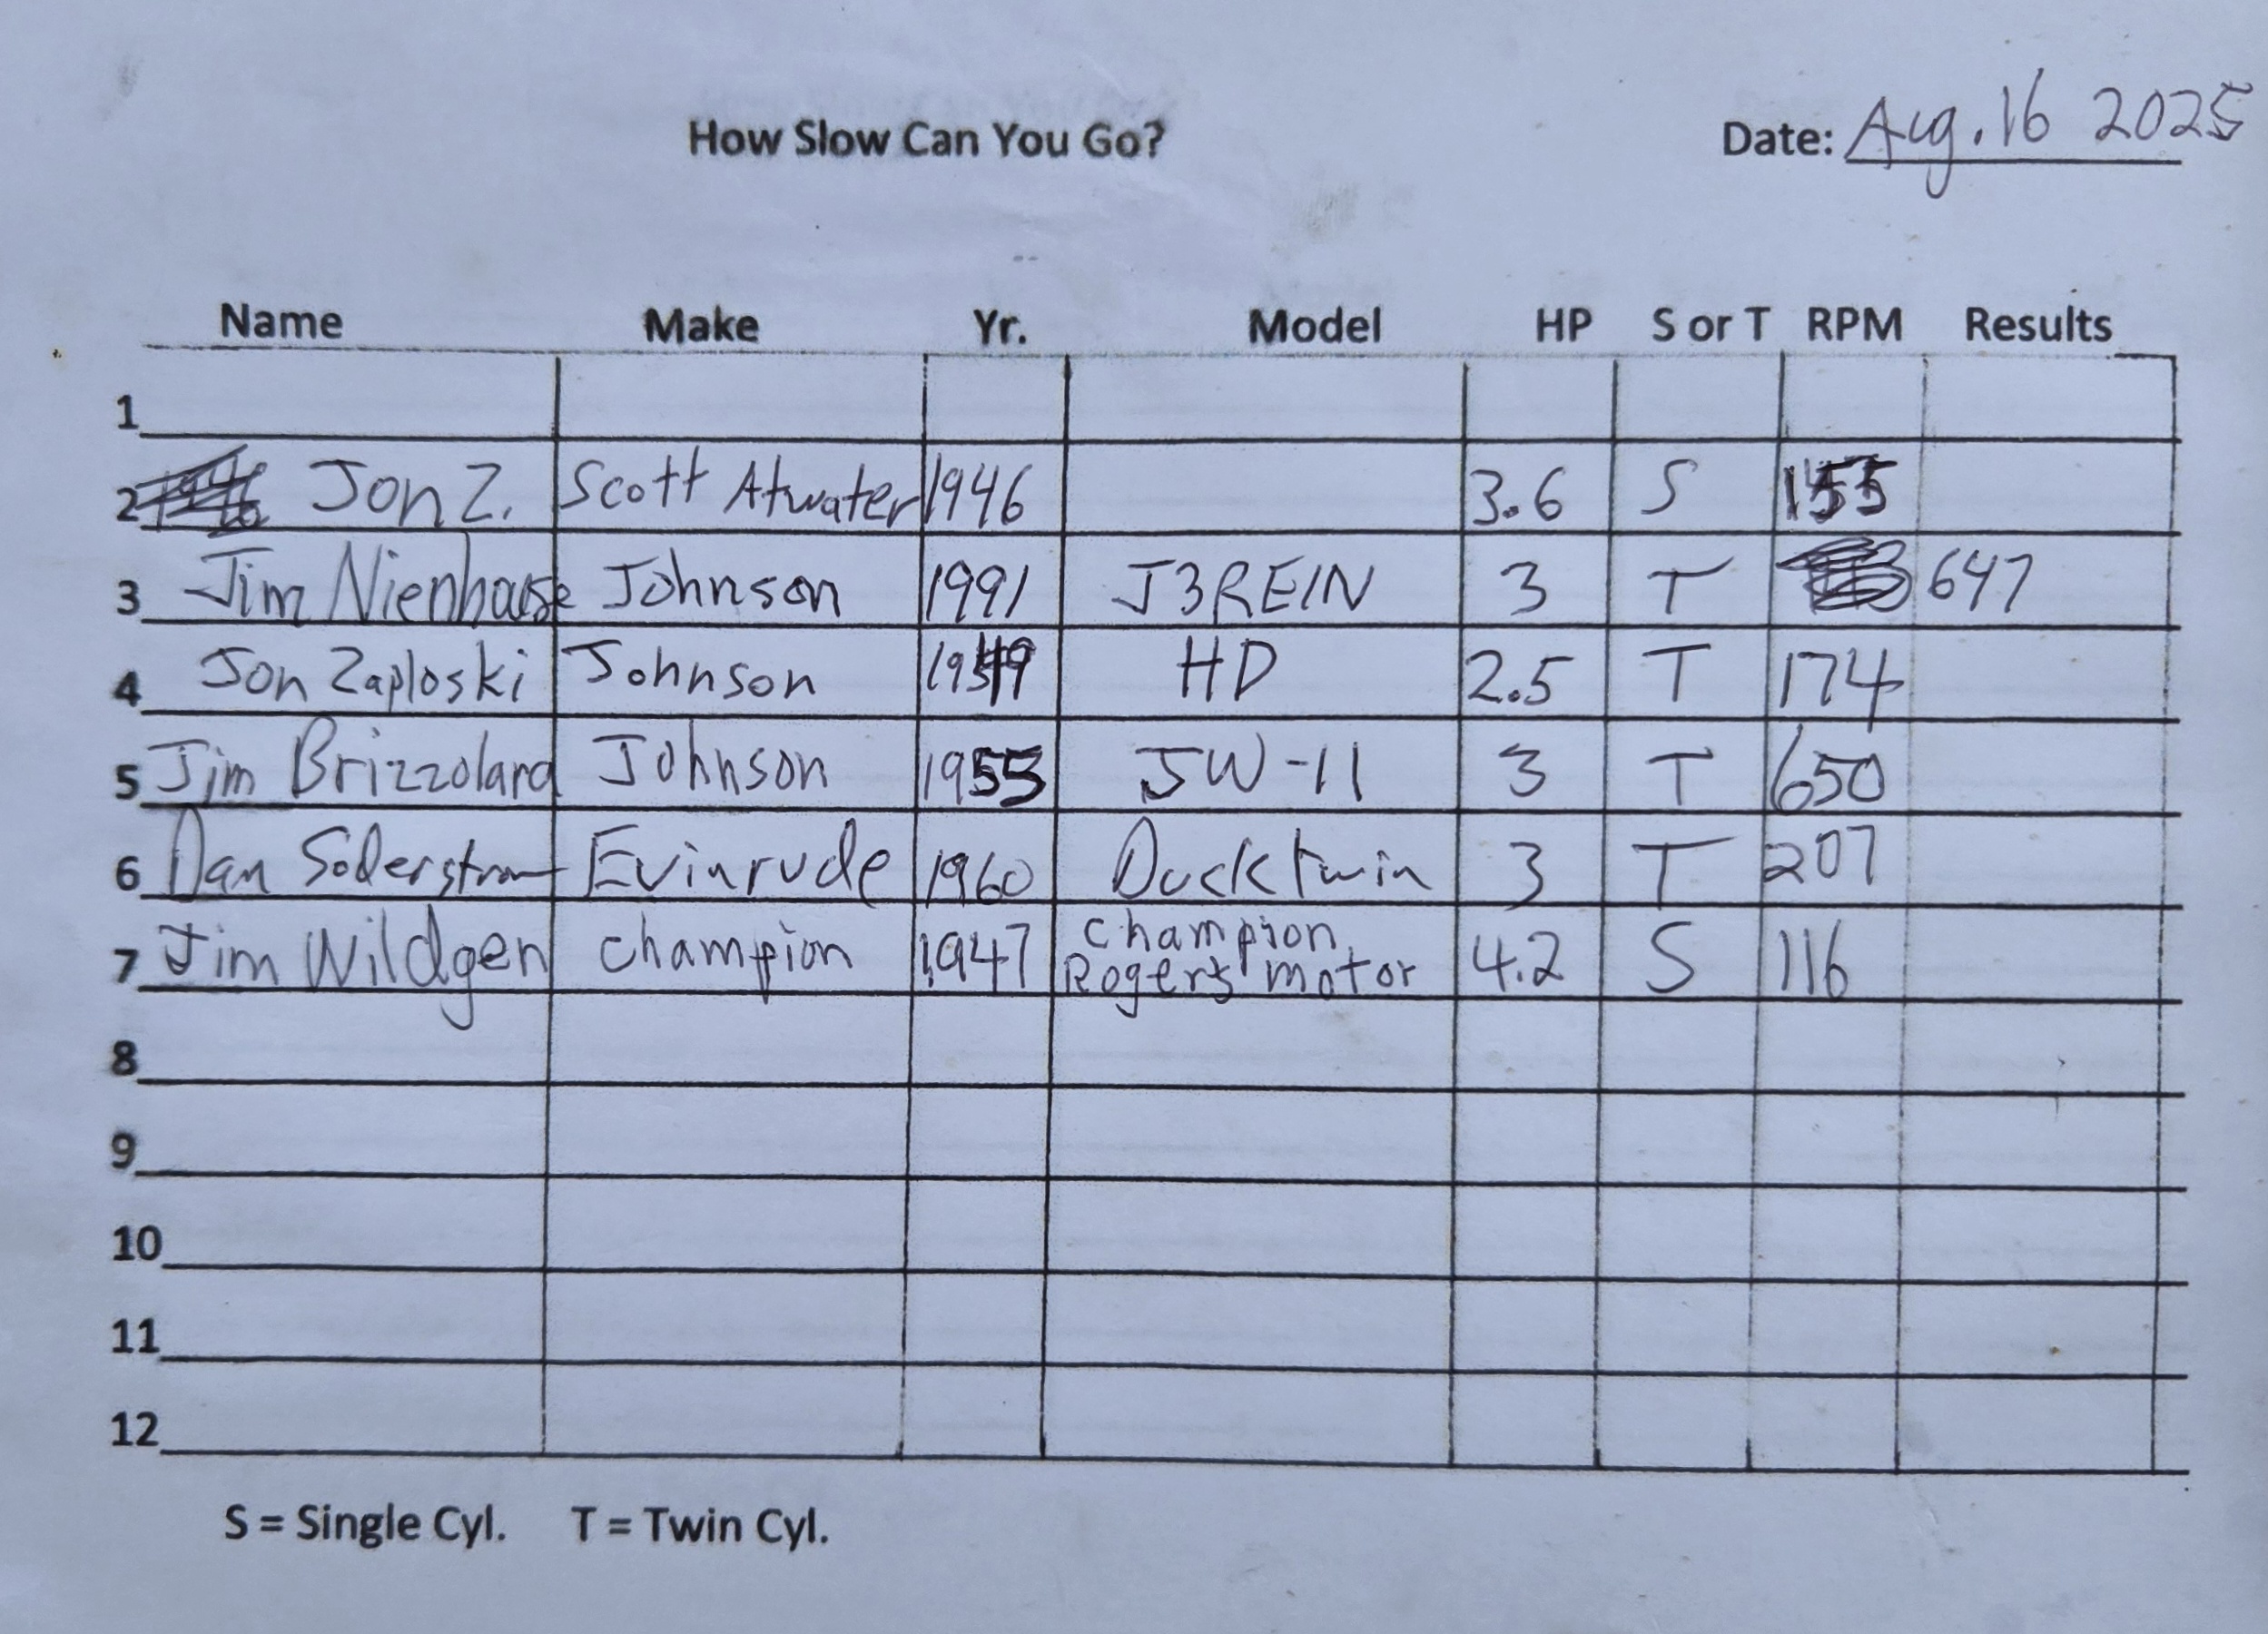 How Slow Can You Go? Date: Aug. 16 2025
Name Make Yr. Model HP S or T RPM Results
1
2 Jon Z. Scott Atwater 1946 3.6 S 155
3 Jim Nienhause Johnson 1991 J3REIN 3 T 647
4 Jon Zaploski Johnson 1949 HD 2.5 T 174
5 Jim Brizzolara Johnson 1955 JW-11 3 T 650
6 Dan Soderstrom Evinrude 1960 Ducktwin 3 T 207
7 Jim Wildgen champion 1947 champion Rogers motor 4.2 S 116
8
9
10
11
12
S = Single Cyl. T = Twin Cyl.